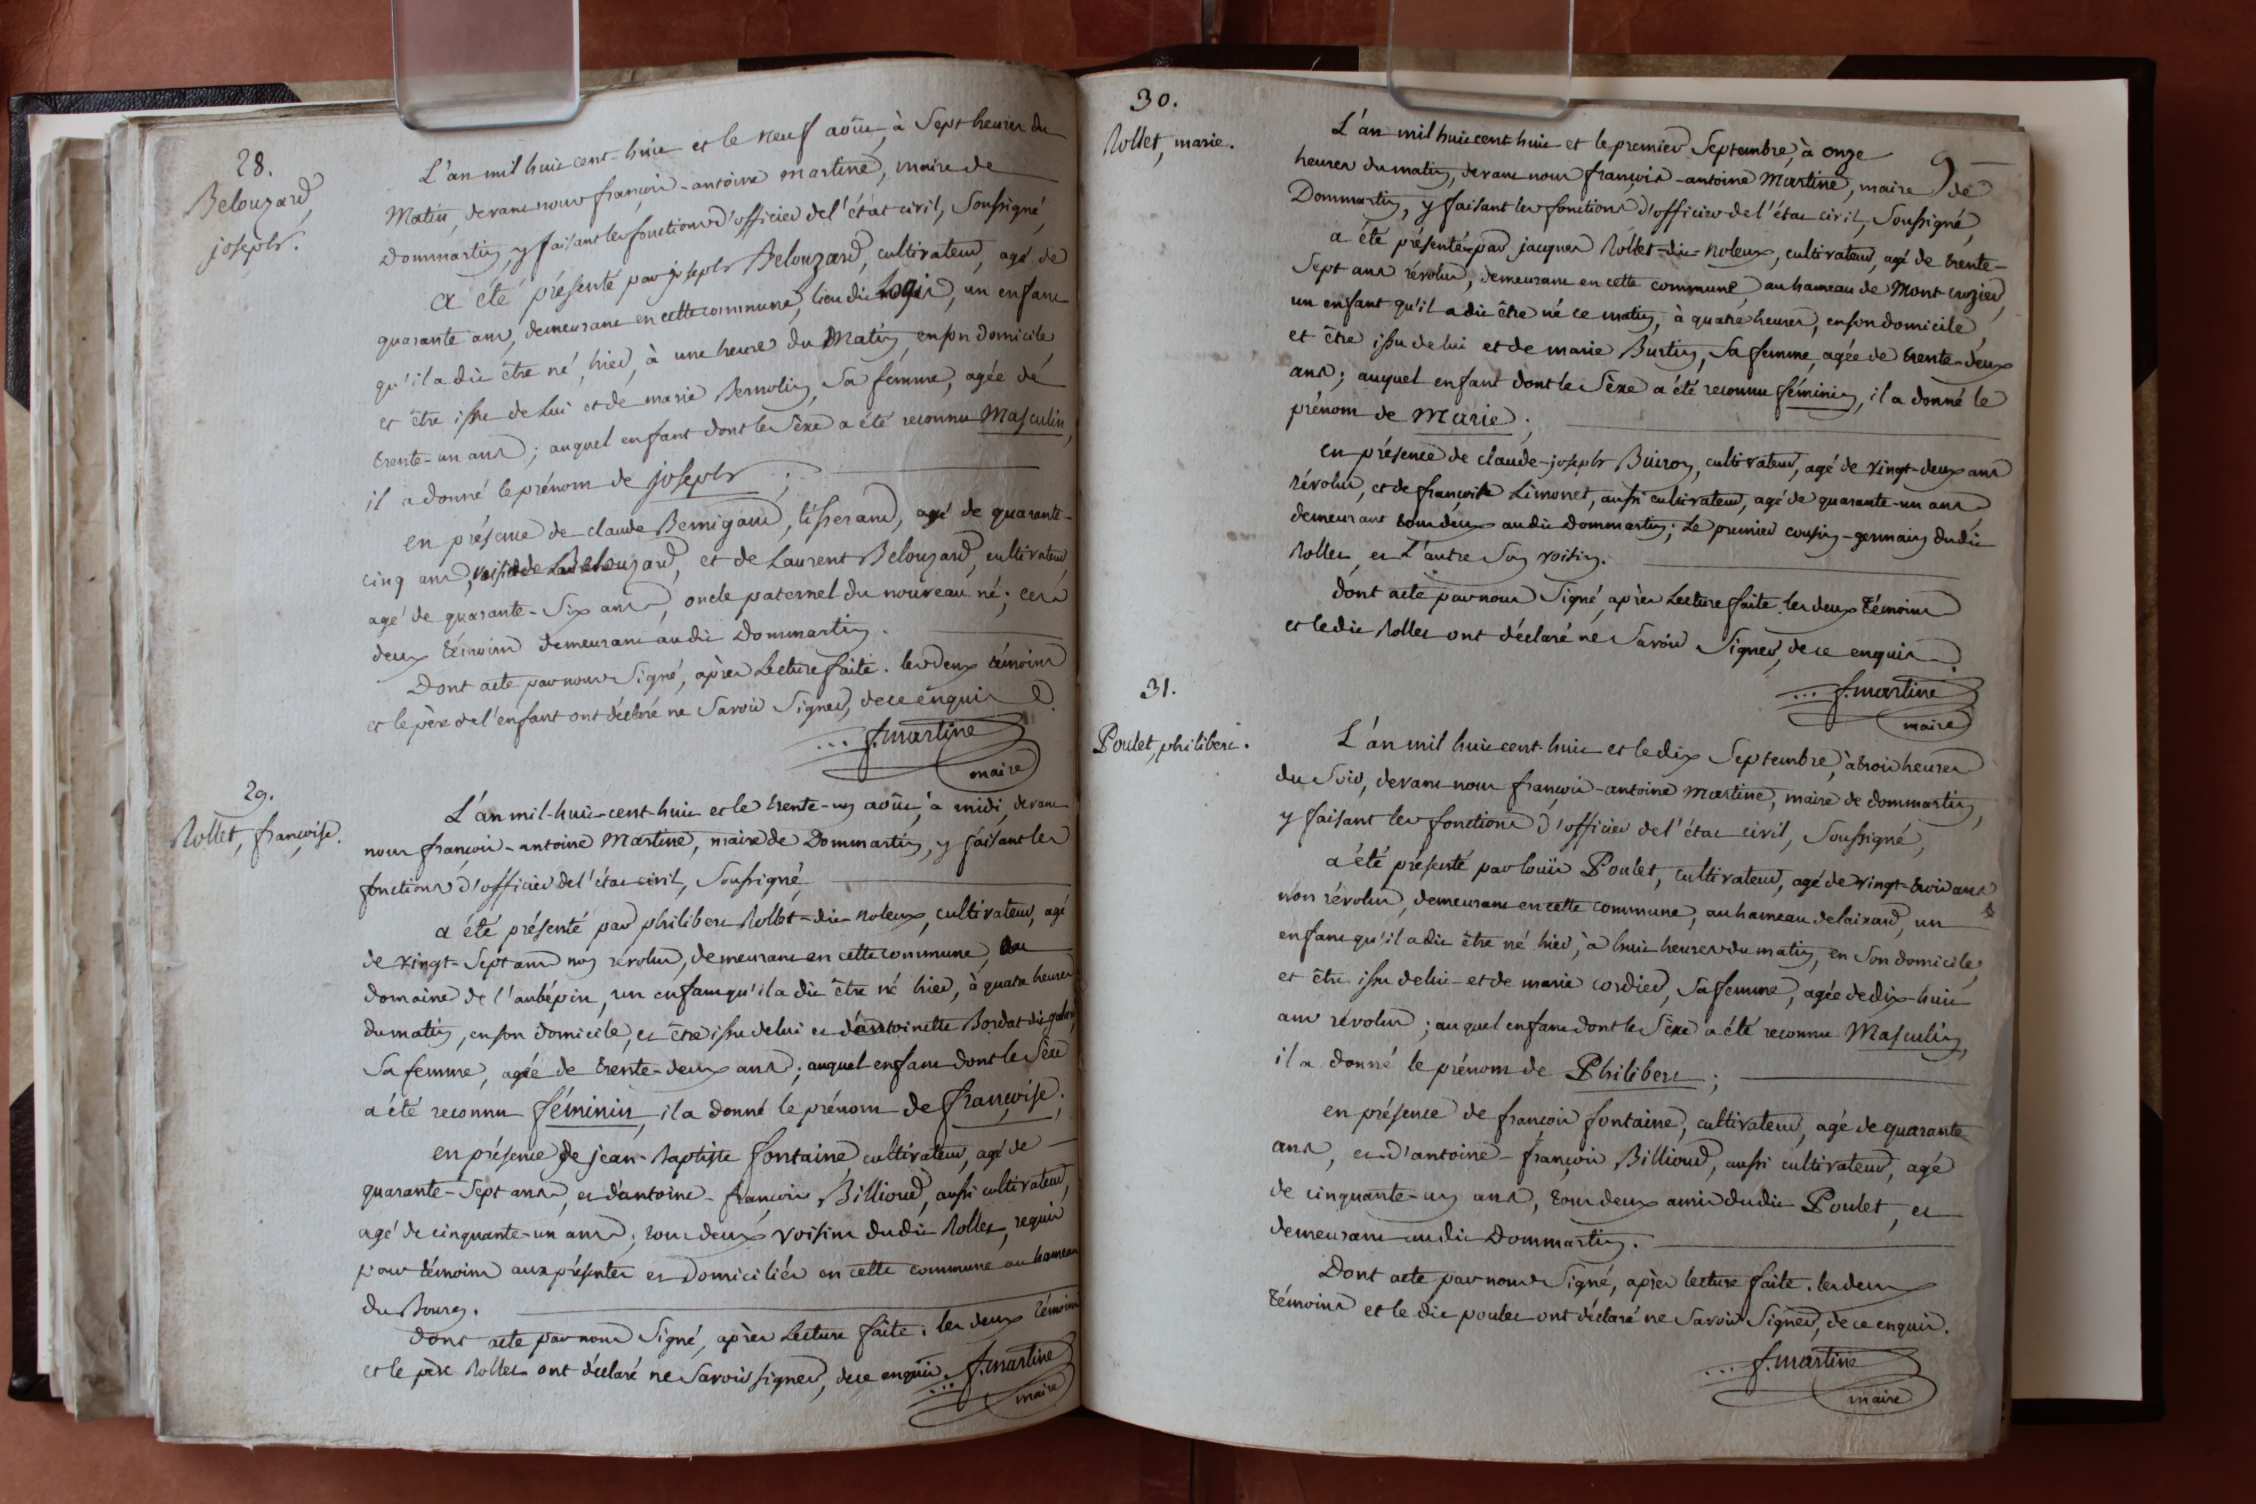 28.
Belouzard,
joseph.
L'an mil huit cent-huit et le neuf août, à Sept heures du
Matin, devant nous françois-antoine martine, maire de
Dommartin, y faisant les fonctions d'officier de l'état civil, Soussigné,
a été présenté par joseph Belouzard, cultivateur, agé de
quarante ans, demeurant en cette commune, lieu dit Logis, un enfant
qu'il a dit être né, hier, à une heure du Matin, en son domicile,
et être issu de lui et de marie Bernolin, Sa femme, agée de
trente-un ans ; auquel enfant dont le Sèxe a été reconnu Masculin,
il a donné le prénom de joseph ;
en présence de claude Bernigaud, tisserand, agé de quarante-
cinq ans, Belouzard, et de Laurent Belouzard, cultivateur,
agé de quarante-Six ans, oncle paternel du nouveau né ; ces
deux témoins demeurant audit Dommartin.
Dont acte par nous Signé, après Lecture faite. les deux témoins
et le père de l'enfant ont déclaré ne Savoir Signer, de ce enquis.
... f. martine
maire
29.
Rollet, françoise.
L'an mil-huit-cent-huit et le trente-un août, à midi, devant
nous françois-antoine Martine, maire de Dommartin, y faisant les
fonctions d'officier de l'état civil, Soussigné,
a été présenté par philibert Rollet-dit-noleux, cultivateur, agé
de vingt-Sept ans non révolus, demeurant en cette commune, au
domaine de l'aubépin, un enfant qu'il a dit être né hier, à quatre heures
du matin, en son domicile, et être issu de lui et d'antoinette Bordat dit
Sa femme, agée de trente-deux ans ; auquel enfant dont le Sèxe
a été reconnu féminin, il a donné le prénom de françoise.
en présence de jean-Baptiste fontaine cultivateur, agé de
quarante-Sept ans, et d'antoine-françois Billioud, aussi cultivateur,
agé de cinquante-un ans ; tous deux voisins dudit Rollet, requis
pour témoins aux présentes et domiciliés en cette commune au hameau
du Bourg.
dont acte par nous Signé, après Lecture faite ; les deux témoins
et le père Rollet ont déclaré ne Savoir signer, de ce enquis. ... f. martine
maire
30.
Rollet, marie.
9
L'an mil huit cent huit et le premier Septembre, à onze
heures du matin, devant nous françois-antoine Martine, maire de
Dommartin, y faisant les fonctions d'officier de l'état civil, Soussigné,
a été présenté par jacques Rollet-dit-noleux, cultivateur, agé de trente-
Sept ans révolus, demeurant en cette commune au hameau de Mont crozier,
un enfant qu'il a dit être né ce matin, à quatre heures, en son domicile
et être issu de lui et de marie Burtin, Sa femme, agée de trente-deux
ans ; auquel enfant dont le Sèxe a été reconnu féminin, il a donné le
prénom de Marie ;
en présence de claude-joseph Buiron, cultivateur, agé de vingt-deux ans
révolus, et de françois Limonet, aussi cultivateur, agé de quarante-un ans
demeurant tous deux audit dommartin ; Le premier cousin-germain dudit
Rollet et L'autre Son voisin.
dont acte par nous Signé, après Lecture faite. les deux témoins
et le dit Rollet ont déclaré ne Savoir Signer, de ce enquis.
... f. martine
maire
31.
Poulet, philibert.
L'an mil huit cent-huit et le dix Septembre, à trois heures
du Soir, devant nous françois-antoine Martine, maire de dommartin,
y faisant les fonctions d'officier de l'état civil, Soussigné,
a été présenté par louis Poulet, cultivateur, agé de vingt-trois ans
non révolus, demeurant en cette commune, au hameau delaixard, un
enfant qu'il a dit être né hier, à huit heures du matin, en Son domicile,
et être issu de lui et de marie cordier, Sa femme, agée de dix-huit
ans révolus ; auquel enfant dont le Sèxe a été reconnu Masculin,
il a donné le prénom de Philibert ;
en présence de françois fontaine, cultivateur, agé de quarante
ans, et d'antoine-françois Billioud, aussi cultivateur, agé
de cinquante-un ans, tous deux amis dudit Poulet, et
demeurant audit Dommartin.
Dont acte par nous Signé, après lecture faite. les deux
témoins et le dit poulet ont déclaré ne Savoir Signer, de ce enquis.
... f. martine
maire